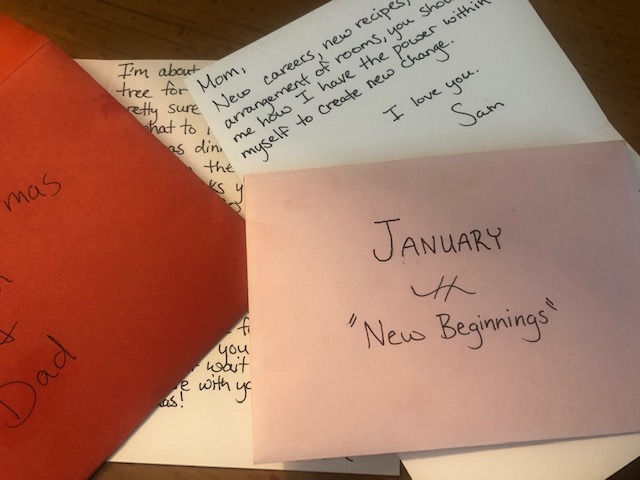 mas
&
Dad
I'm about
tree for
pretty sure
what to
as din
the
ks y
you
wait
e with yo
as!
Mom,
New careers, new recipes,
arrangement of rooms, you
me how I have the power within
myself to create new change.
I love you.
Sam
JANUARY
"New Beginnings"